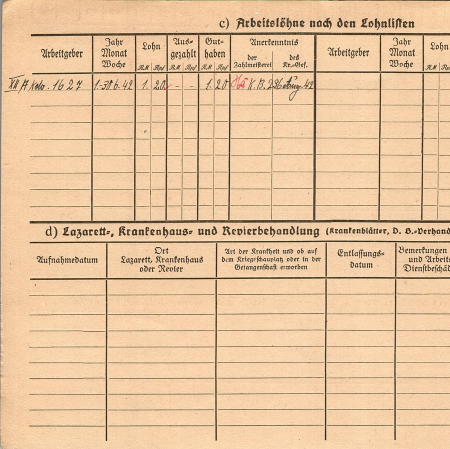 c) Arbeitslöhne nach den Lohnlisten
Arbeitgeber
Jahr
Monat
Woche
Lohn
RM Rpf
Aus-
gezahlt
RM Rpf
Gut-
haben
RM Rpf
Anerkenntnis
der
Zahlmeisterei
des
Kr.-Gef.
Arbeitgeber
Jahr
Monat
Woche
Lohn
RM Rpf
1627 1-30.6.42 1. 20 - - 1. 20 42
d) Lazarett-, Krankenhaus- und Revierbehandlung (Krankenblätter, D. B.-Verhand
Aufnahmedatum
Ort
Lazarett, Krankenhaus
oder Revier
Art der Krankheit und ob auf
dem Kriegsschauplatz oder in der
Gefangenschaft erworben
Entlassungs-
datum
Bemerkungen
und Arbeits
Dienstbeschäd